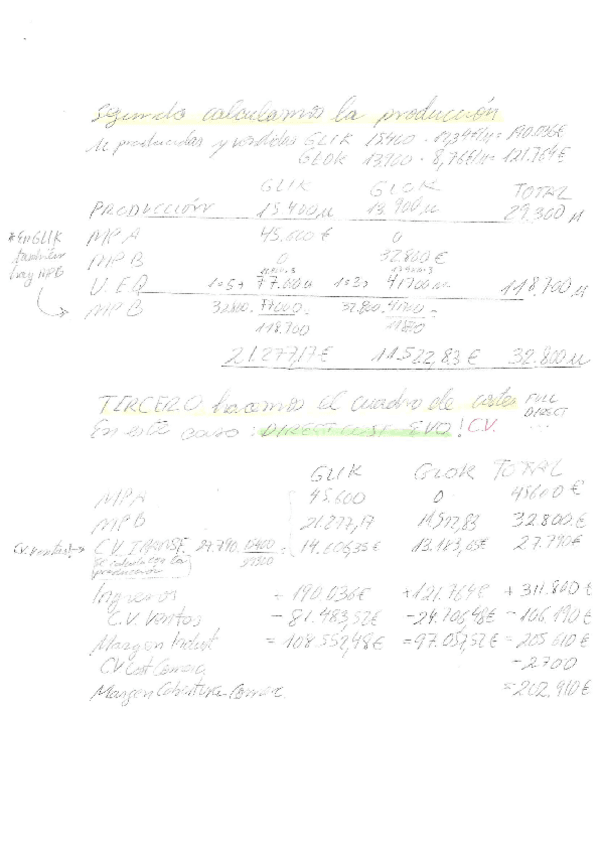 Segundo calculamos la producción
U producidas y vendidas GLIK 15400 · 12,34€/u = 190.036€
GLOK 13900 · 8,76€/u = 121.764€
GLIK GLOK TOTAL
PRODUCCIÓN 15.400u 13.900u 29.300 u
*En GLIK también hay MPB
MPA 45.600 € 0
MPB 0 32.800 €
U. EQ 1=5 → 77.000u 1=3 → 41700u 118.700 u
MPB 32.800 · 77000 / 118.700 32.800 · 41700 =
21.277,17€ 11.522,83 € 32.800 u
TERCERO hacemos el cuadro de costes FULL DIRECT ...
En este caso: DIRECT COST EVO! C.V.
GLIK GLOK TOTAL
MPA 45.600 0 45600 €
MPB 21.277,17 11.522,83 32.800€
C.V. ventas! → C.V. TRANSF. 27.790 · 15400 / 29300 = 14.606,35 € 13.183,65€ 27.790€
Se calcula con la producción
Ingresos = 190.036€ +121.764€ + 311.800 €
C.V. Ventas - 81.483,52€ -24.706,48€ - 106.190 €
Margen Indust = 108.552,48€ = 97.057,52€ = 205.610 €
CV Cost Comerc -2.700
Margen Cobertura Comer. = 202.910 €